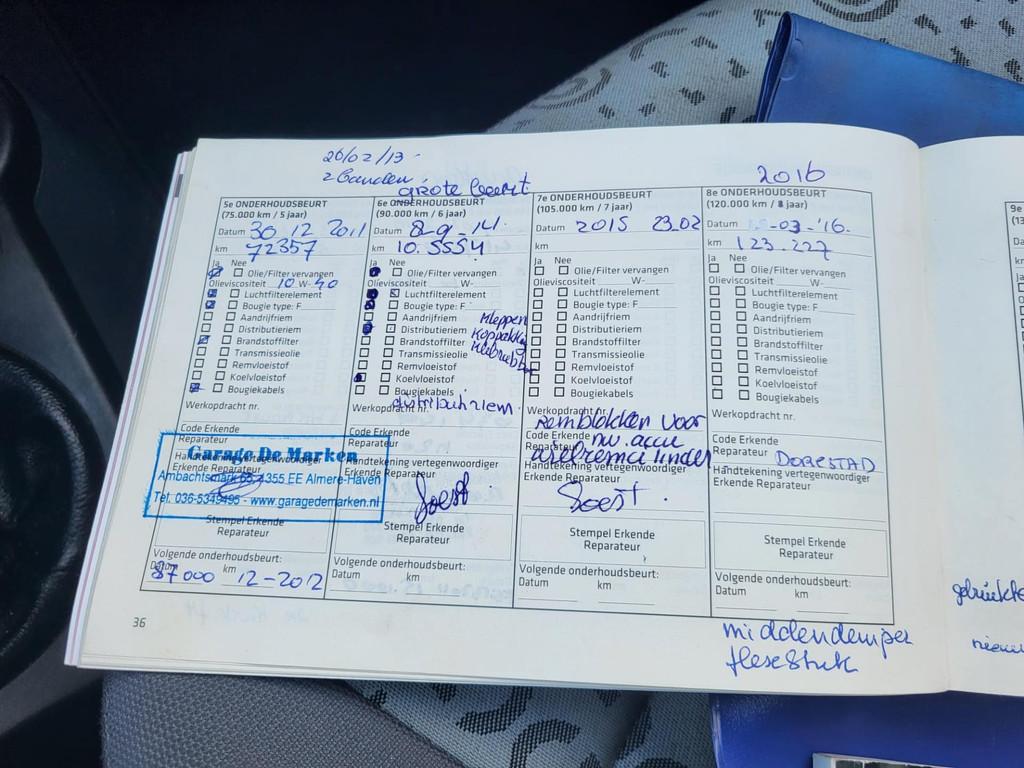 26/02/13
2 banden
grote beurt
2016
5e ONDERHOUDSBEURT
(75.000 km / 5 jaar)
Datum 30 12 2011
km 72357
Ja Nee
Olie/Filter vervangen
Olieviscositeit 10 W- 40
Luchtfilterelement
Bougie type: F
Aandrijfriem
Distributieriem
Brandstoffilter
Transmissieolie
Remvloeistof
Koelvloeistof
Bougiekabels
Werkopdracht nr.
Code Erkende
Reparateur
Handtekening vertegenwoordiger
Erkende Reparateur
Garage De Marken
Ambachtsmark 65, 1355 EE Almere-Haven
Tel. 036-5349495 - www.garagedemarken.nl
Stempel Erkende
Reparateur
Volgende onderhoudsbeurt:
Datum km
87000 12-2012
6e ONDERHOUDSBEURT
(90.000 km / 6 jaar)
Datum 8-9-14.
km 10.5554
Ja Nee
Olie/Filter vervangen
Olieviscositeit W-
Luchtfilterelement
Bougie type: F
Aandrijfriem
Distributieriem
Brandstoffilter
Transmissieolie
Remvloeistof
Koelvloeistof
Bougiekabels
kleppen
distributieriem
Werkopdracht nr.
Code Erkende
Reparateur
Handtekening vertegenwoordiger
Erkende Reparateur
Soest
Stempel Erkende
Reparateur
Volgende onderhoudsbeurt:
Datum km
7e ONDERHOUDSBEURT
(105.000 km / 7 jaar)
Datum 2015 23.02
km
Ja Nee
Olie/Filter vervangen
Olieviscositeit W-
Luchtfilterelement
Bougie type: F
Aandrijfriem
Distributieriem
Brandstoffilter
Transmissieolie
Remvloeistof
Koelvloeistof
Bougiekabels
Werkopdracht nr.
remblokken voor
Code Erkende
Reparateur
nw. accu
Handtekening vertegenwoordiger
Erkende Reparateur
Soest.
Stempel Erkende
Reparateur
Volgende onderhoudsbeurt:
Datum km
8e ONDERHOUDSBEURT
(120.000 km / 8 jaar)
Datum -03-'16.
km 123.227
Ja Nee
Olie/Filter vervangen
Olieviscositeit W-
Luchtfilterelement
Bougie type: F
Aandrijfriem
Distributieriem
Brandstoffilter
Transmissieolie
Remvloeistof
Koelvloeistof
Bougiekabels
Werkopdracht nr.
Code Erkende
Reparateur DORESTAD
Handtekening vertegenwoordiger
Erkende Reparateur
Stempel Erkende
Reparateur
Volgende onderhoudsbeurt:
Datum km
middendemper
36
9e